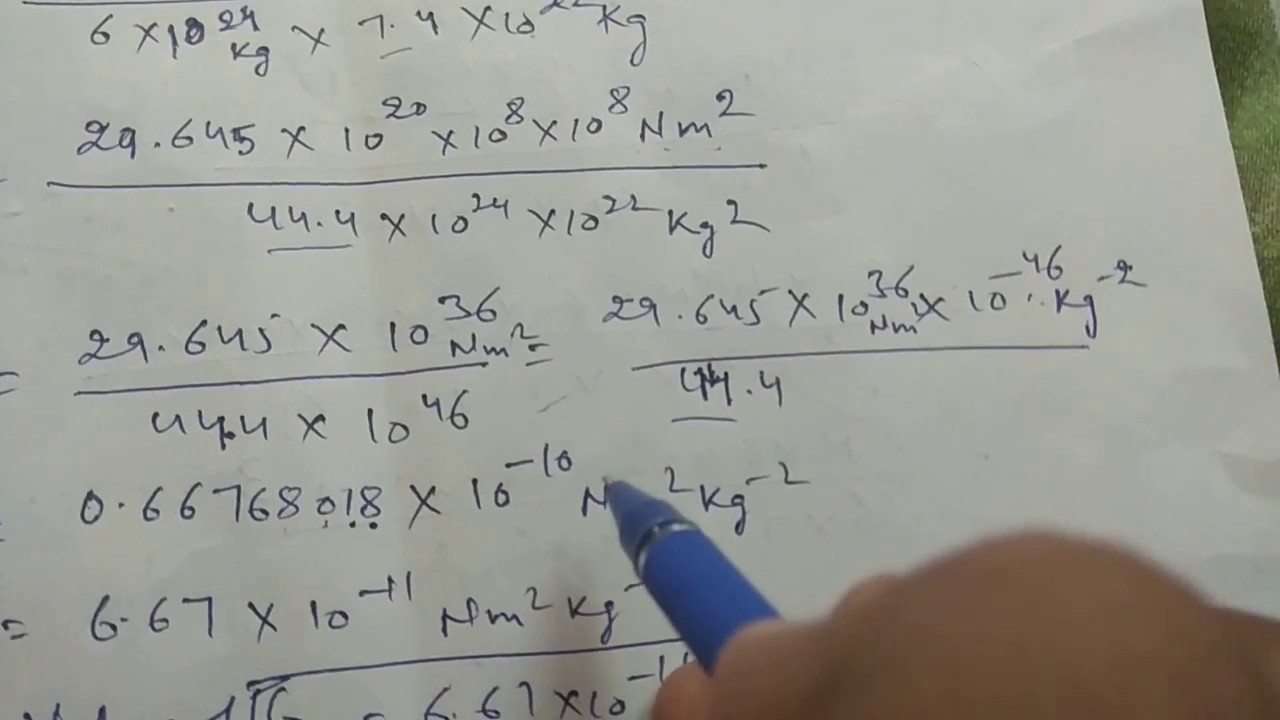 6 × 10²⁴ kg × 7.4 × 10²² kg
29.645 × 10²⁰ × 10⁸ × 10⁸ Nm²
44.4 × 10²⁴ × 10²² Kg²
= 29.645 × 10³⁶ Nm² = 29.645 × 10³⁶ Nm² × 10⁻⁴⁶ Kg⁻²
44.4 × 10⁴⁶ 44.4
0.66768018 × 10⁻¹⁰ N ² Kg⁻²
= 6.67 × 10⁻¹¹ Nm² Kg⁻
= 6.67 × 10⁻¹¹